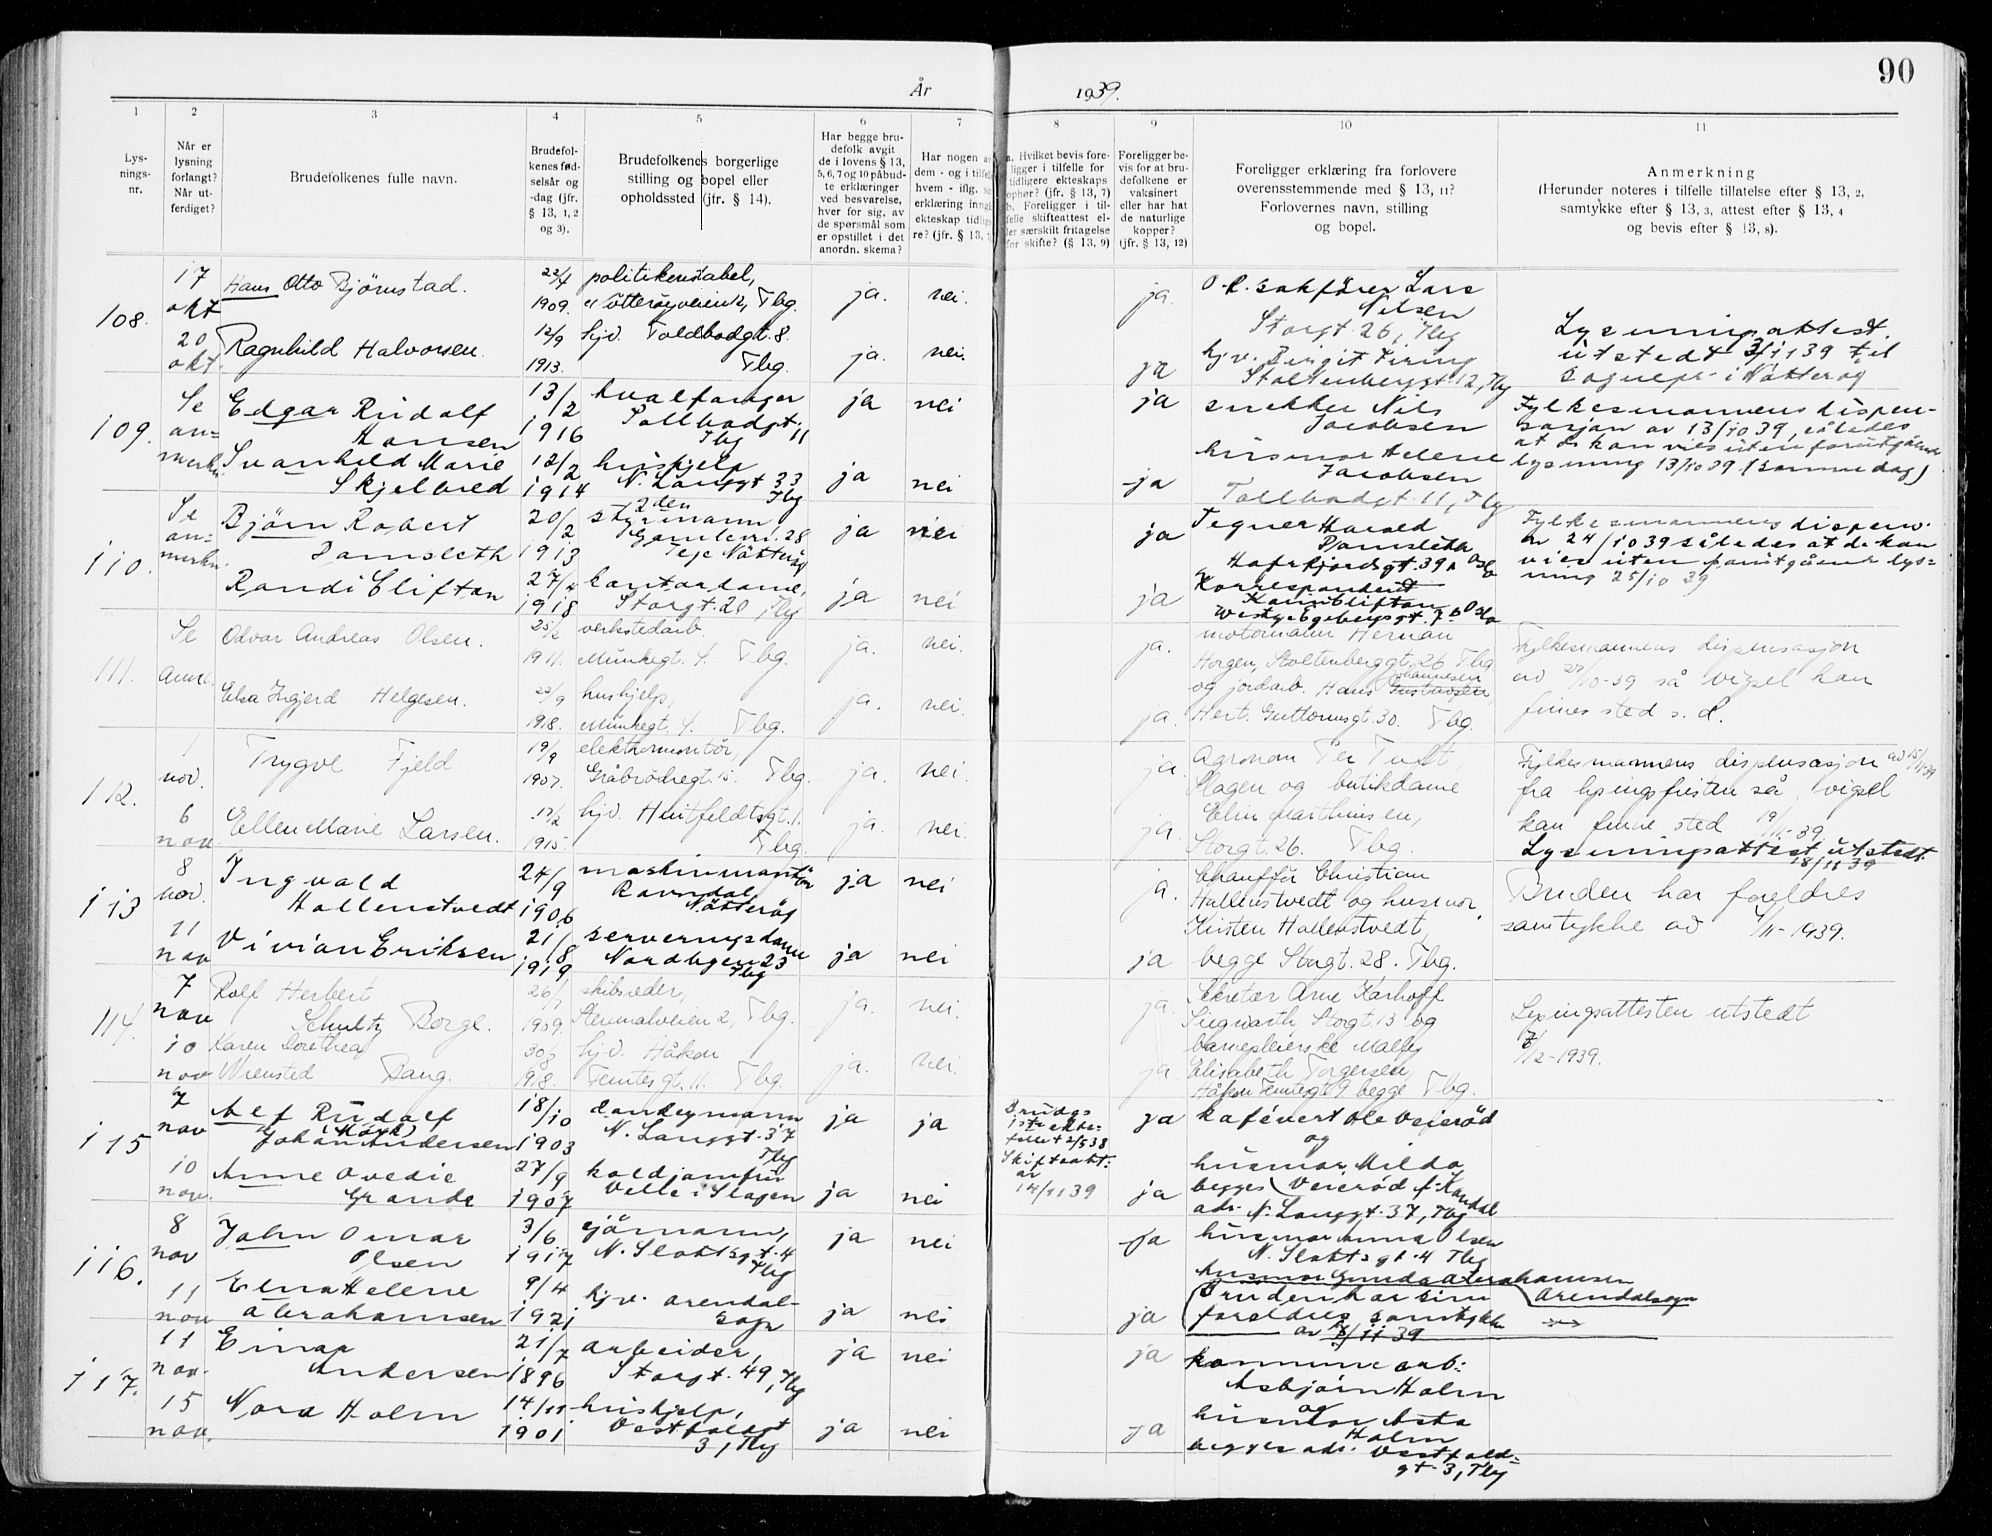 90
År 1939.
1 2 3 4 5 6 7 8 9 10 11
Lys-
nings-
nr.
Når er
lysning
forlangt?
Når ut-
ferdiget?
Brudefolkenes fulle navn.
Brudefol-
kenes fød-
selsår og
-dag (jfr.
§ 13, 1, 2
og 3).
Brudefolkenes borgerlige
stilling og bopel eller
opholdssted (jfr. § 14).
Har begge bru-
defolk avgit
de i lovens § 13,
5, 6, 7 og 10 påbud-
te erklæringer
ved besvarelse,
hver for sig, av
de spørsmål som
er opstillet i det
anordn. skema?
Har nogen av
dem - og i tilfelle
hvem - iflg.
erklæring inngått
ekteskap tidlige-
re? (jfr. § 13,
a. Hvilket bevis fore-
ligger i tilfelle for
tidligere ekteskaps
ophør? (jfr. § 13, 7)
b. Foreligger i til-
felle skifteattest el-
ler særskilt fritagelse
for skifte? (§ 13, 9)
Foreligger be-
vis for at bru-
defolkene er
vaksinert
eller har hat
de naturlige
kopper?
(jfr. § 13, 12)
Foreligger erklæring fra forlovere
overensstemmende med § 13, 11?
Forlovernes navn, stilling
og bopel.
Anmerkning
(Herunder noteres i tilfelle tillatelse efter § 13, 2,
samtykke efter § 13, 3, attest efter § 13, 4
og bevis efter § 13, 8).
108.
17
okt
20
okt.
Hans Otto Bjørnstad.
22/4
1909.
politikonstabel,
Nøtterøyveien 2, Tbg.
ja. nei.
Ragnhild Halvorsen.
12/9
1913.
hjv. Toldbodgt. 8.
Tbg.
ja. nei.
ja.
O.r.sakfører Lars
Nilsen
Storgt. 26, Tbg
ja
hjv. Birgit Firing
Stoltenberggt. 12, Tbg
Lysningsattest
utstedt 3/11 39 til
sognepr. i Nøtterøy
109.
Se
an=
merkn.
Edgar Rudolf
Hansen
13/2
1916
hvalfanger
Tollbodgt. 11
Tbg
ja nei
Svanhild Marie
Skjelbred
12/2
1914
hushjelp
N. Langgt 33
Tbg
ja nei
ja
snekker Nils
Jacobsen
husmor Helene
Jacobsen
ja
Tollbodgt. 11, Tbg
Fylkesmannens dispen-
sasjon av 13/10 39, således
at de kan vies uten forutgående
lysning 13/10 39 (samme dag)
110.
Se
an=
merkn.
Bjørn Robert
Ramsleth
20/2
1913
2den
styrmann
Gamlevn. 28
Teje Nøtterøy
ja nei
Randi Clifton
27/
1918
kontordame,
Storgt. 20, Tbg
ja nei
ja
Tegner Harald
Ramsleth
Hafrsfjordgt. 39 A Oslo
ja
Korrespondent
Karin Clifton
Westye Egebergsgt. 7 b Oslo
Fylkesmannens dispens.
av 24/10 39 således at de kan
vies uten forutgående lys=
ning 25/10 39
111.
Se
anm.
Odvar Andreas Olsen.
25/2
1911.
verkstedarb.
Munkegt. 4. Tbg.
ja. nei.
Elsa Ingjerd Helgesen.
22/9
1918.
hushjelp,
Munkegt. 4. Tbg.
ja. nei.
ja.
motormann Herman
Horgen, Stoltenberggt. 26 Tbg
Johannesen
og jordarb. Hans Gustavsen,
ja.
Hert. Guttormsgt. 30. Tbg.
Fylkesmannens dispensasjon
av 27/10-39 så vigsel kan
finne sted s. d.
112.
1
nov.
6
nov
Trygve Fjeld
19/9
1907.
elektromontør,
Gråbrødregt. 15. Tbg.
ja. nei.
Ellen Marie Larsen.
17/2
1915.
hjv. Huitfeldtsgt. 1.
Tbg.
ja. nei.
ja.
Agronom Per Tuft,
Slagen og butikdame
Elin Marthinsen,
ja.
Storgt. 26. Tbg.
Fylkesmannens dispensasjon av 15/11-39
fra lysingsfristen så vigsel
kan finne sted 19/11-39.
Lysningsattest utstedt
18/11 39
113
8
nov.
11
nov
Ingvald
Hallenstvedt
24/9
1906
maskinmontør
Ravndal
Nøtterøy
ja nei
Vivian Eriksen
21/8
1919
serveringsdame
Nordbyen 23
Tbg
ja nei
ja
Chauffør Christian
Hallenstvedt og husmor
Kirsten Hallenstvedt,
ja
begge Storgt. 28. Tbg.
Bruden har foreldres
samtykke av 4/11-1939.
114.
7
nov
10
nov
Rolf Herbert
Schultz Borge.
26/
1909
skibsreder,
Stenmalveien 2, Tbg.
ja. nei.
Karen Dorethea
Wrensted Bang.
30/
1918.
hjv. Håkon
Femtesgt. 11. Tbg.
ja. nei.
ja
Sekretær Arne Karhoff
Siegwarth Storgt. 13 og
barnepleierske Mally
ja
Elisabeth Torgersen,
Håkon Femtesgt 9 begge Tbg.
Lysingsattesten utstedt
7/12-1939.
115
7
nov
10
nov.
Alf Rudolf
(Kåre)
Johan Andersen
18/10
1903
donkeymann
N. Langgt. 37
Tbg
ja ja
Anne Ovedie
Grande
27/9
1907
koldjomfru
Velle i Slagen
ja nei
Brudgs
1ste ekte-
felle † 2/5 38
Skifteatt:
av
14/11 39
ja
kafévert Ole Veierød
og
husmor Milda
ja
begges Veierød f. Kandal
adr. N. Langgt. 37, Tbg
116.
8
nov
11
nov
John Omar
Olsen
3/6
1917
sjømann,
N. Slottsgt. 4
Tbg
ja nei
Elna Helene
Abrahamsen
9/4
1921
hjv. Arendal-
sogn
ja nei
ja
husmor Anna Olsen
N. Slottsgt. 4 Tbg
husmor Gunda Abrahamsen
Arendalsogn
ja
Bruden har sine
foreldres samtykke
av 8/11 39
117.
11
nov.
15
nov.
Einar
Andersen
21/7
1896
arbeider,
Storgt. 49, Tbg
ja nei
Nora Holm
14/11
1901
hushjelp,
Vestfoldgt
3, Tbg
ja nei
ja
kommunearb:
Asbjørn Holm
og
ja
husmor Asta
Holm
begges adr. Vestfold=
gt. 3, Tbg